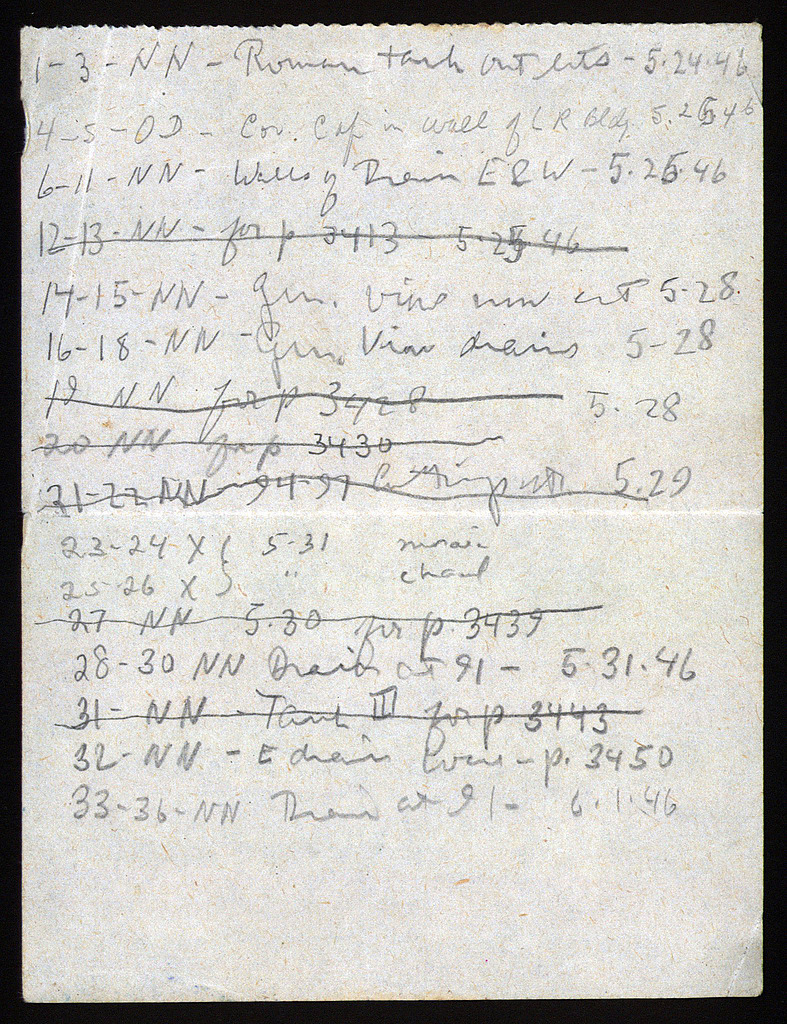 1-3-NN - Roman tank outlets - 5.24.46
4-5-OD - Cor. Cap in wall of LR Bldg. 5.25.46
6-11-NN - Walls of Drain E & W - 5.25.46
12-13-NN - for p 3413 - 5.25 46
14-15-NN - Gen. view 5-28.
16-18-NN - Gen. View drains 5-28
19 NN for p 3428 5.28
20 NN for p 3430
21-22-NN 94-97 5.29
23-24 X ( 5-31 mosaic
25-26 X ) "
27 NN 5.30 for p. 3439
28-30 NN Drain at 91 - 5.31.46
31-NN - Tank III for p 3443
32-NN - E drain - p. 3450
33-36-NN Drain at 91 - 6.1.46